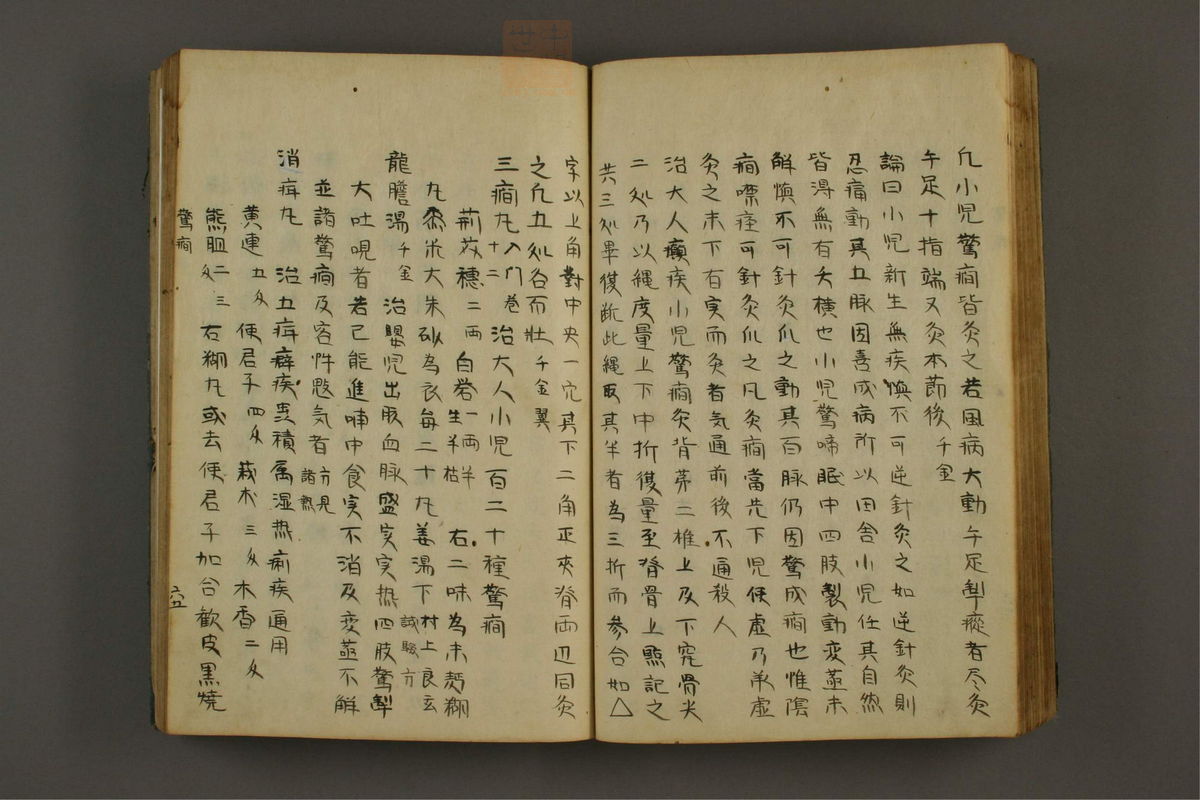 凢小児驚癇皆灸之若風病大動手足掣瘲者尽灸
手足十指端又灸本節後千金
論曰小児新生無疾慎不可逆針灸之如逆針灸則
忍痛動其五脉因喜成病所以田舎小児任其自然
皆得無有夭横也小児驚啼眠中四肢掣動変蒸未
解慎不可針灸爪之動其百脉仍因驚成癇也惟陰
癇噤痓可針灸爪之凡灸癇當先下児使虚乃承虚
灸之未下有実而灸者気逼前後不通殺人
治大人癲疾小児驚癇灸背第二椎上及下窮骨尖
二処乃以縄度量上下中折復量至脊骨上點記之
共三処畢復断此縄取其半者為三折而参合如△
字以上角對中央一穴其下二角正夾脊両辺同灸
之凢五処各百壮千金翼
三癇丸入门十二巻治大人小児百二十種驚癇
荊芥穂二両白礬一両半生半枯右二味為末麪糊
丸黍米大朱砂為衣毎二十丸姜湯下村上良玄試驗方
龍膽湯千金治嬰児出腹血脉盛実実热四肢驚掣
大吐哯者若已能進哺中食実不消及変蒸不解
並諸驚癇及客忤惡气者方見諸热
消疳丸治五疳癖疾虫積属湿热痢疾通用
黄連五匁使君子四匁莪朮三匁木香二匁
熊胆二三匁右糊丸或去使君子加合歓皮黒焼
驚癇
六五